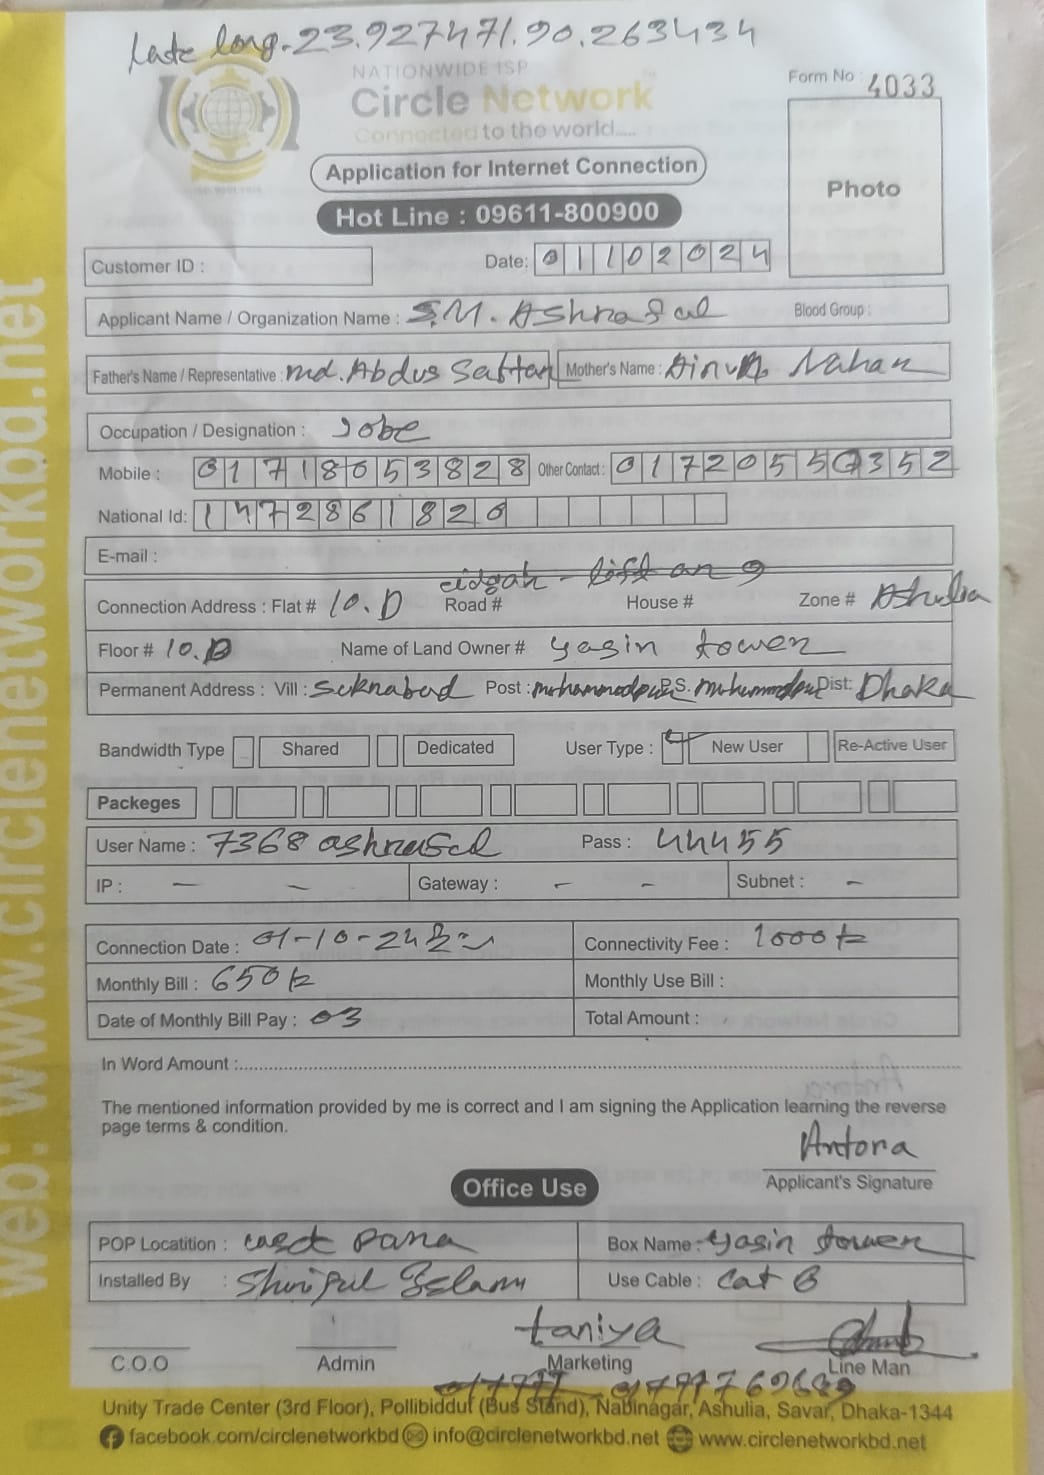 Late long-23.927471.90.263434
NATIONWIDE ISP
Circle Network
Connected to the world.....
Form No : 4033
Application for Internet Connection
Photo
Hot Line : 09611-800900
Customer ID :
Date: 01102024
Applicant Name / Organization Name : S.M. Ashraful Blood Group :
Father's Name / Representative : md. Abdus Sattar Mother's Name : Nahar
Occupation / Designation : Jobe
Mobile : 01718053828 Other Contact : 01720550352
National Id: 1472861820
E-mail :
eidgah - lift an 9
Connection Address : Flat # 10.D Road # House # Zone # Ashulia
Floor # 10.D Name of Land Owner # yasin tower
Permanent Address : Vill : Post : mohammodpur P.S. Dist: Dhaka
Bandwidth Type Shared Dedicated User Type : New User Re-Active User
Packeges
User Name : 7368 ashraful Pass : 44455
IP : - - Gateway : - - Subnet : -
Connection Date : 01-10-24 Connectivity Fee : 1000 tk
Monthly Bill : 650 tk Monthly Use Bill :
Date of Monthly Bill Pay : 03 Total Amount :
In Word Amount :
The mentioned information provided by me is correct and I am signing the Application learning the reverse
page terms & condition.
Antora
Applicant's Signature
Office Use
POP Locatition : east para Box Name : yasin tower
Installed By : Shoriful Islam Use Cable : Cat 6
taniya
C.O.O Admin Marketing Line Man
Unity Trade Center (3rd Floor), Pollibiddut (Bus Stand), Nabinagar, Ashulia, Savar, Dhaka-1344
facebook.com/circlenetworkbd info@circlenetworkbd.net www.circlenetworkbd.net
web: www.circlenetworkbd.net